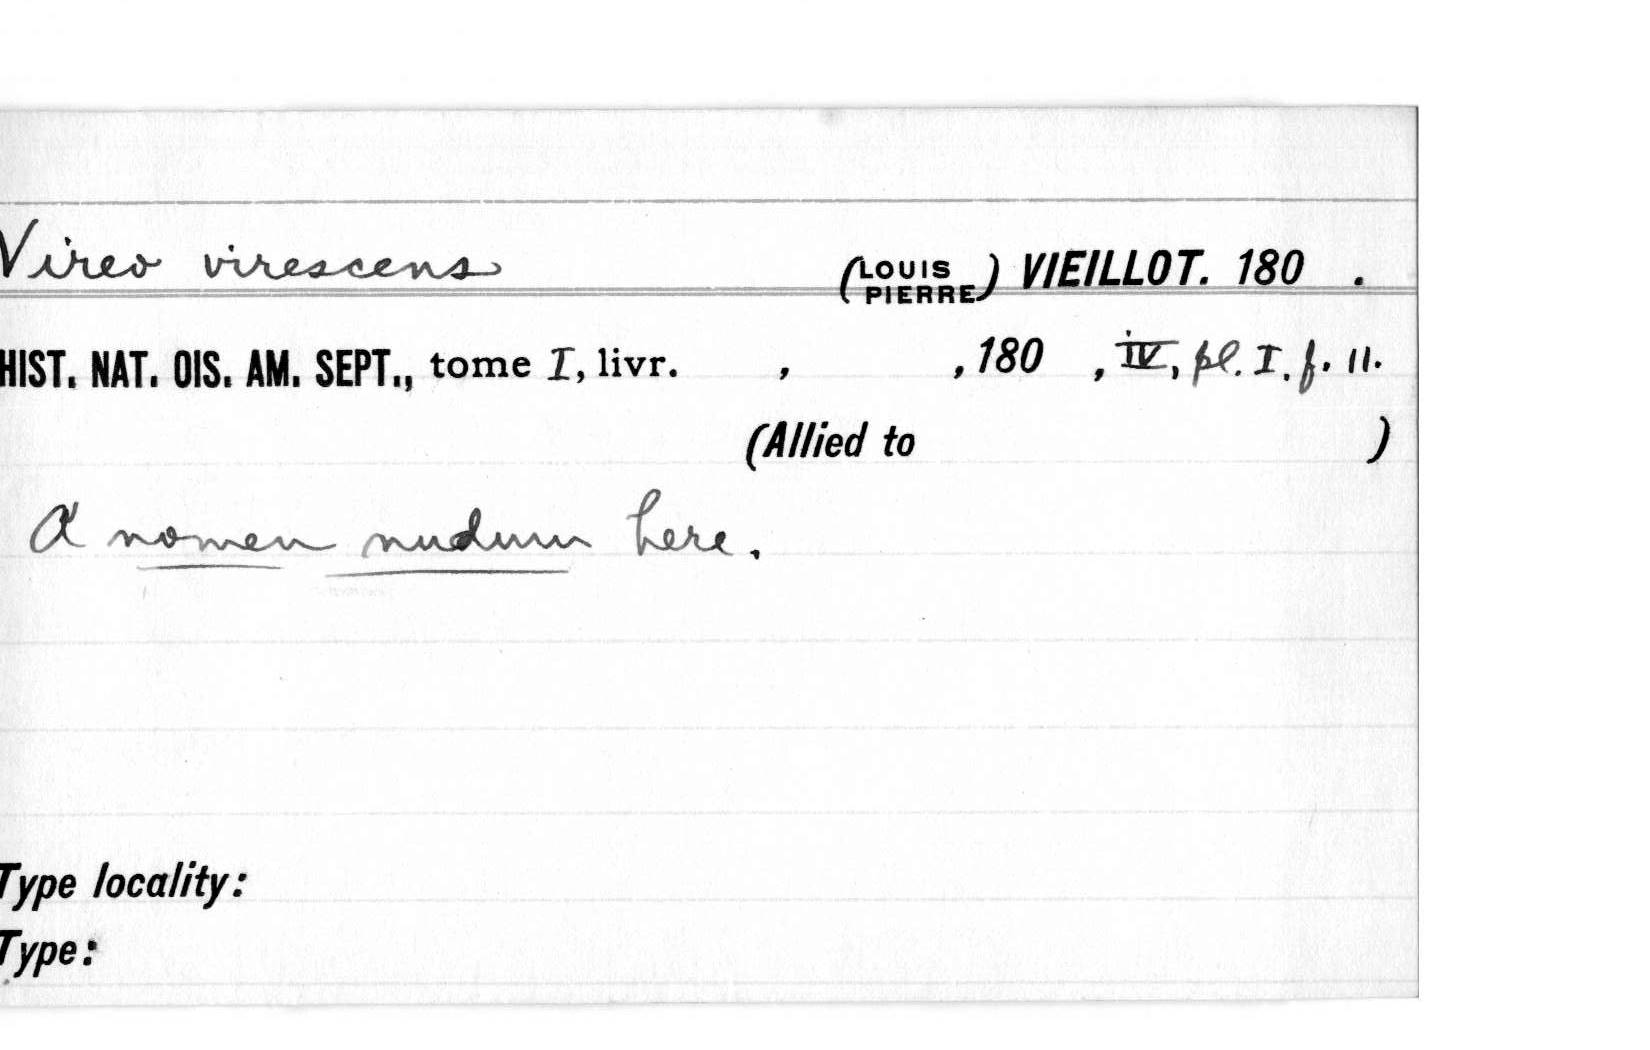 Vireo virescens (LOUIS PIERRE) VIEILLOT. 180 .
HIST. NAT. OIS. AM. SEPT., tome I, livr. , , 180 , iv, pl. I. f. 11.
(Allied to )
A nomen nudum here.
Type locality:
Type: